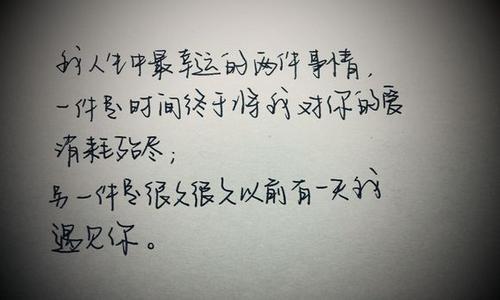 我人生中最幸运的两件事情,
一件是时间终于将我对你的爱
消耗殆尽;
另一件是很久很久以前有一天我
遇见你。